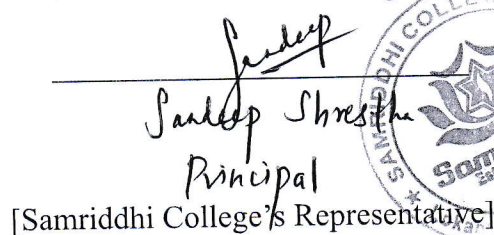 Sandeep
Sandeep Shrestha
Principal
[Samriddhi College's Representative]
SAMRIDDHI COLL